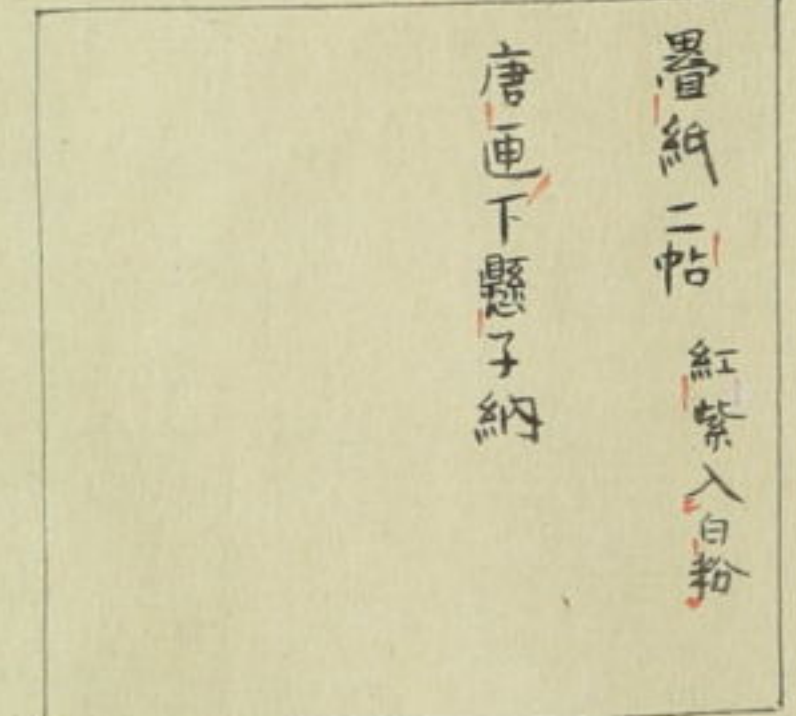 疊紙二帖 紅紫入白粉
唐匣下懸子納